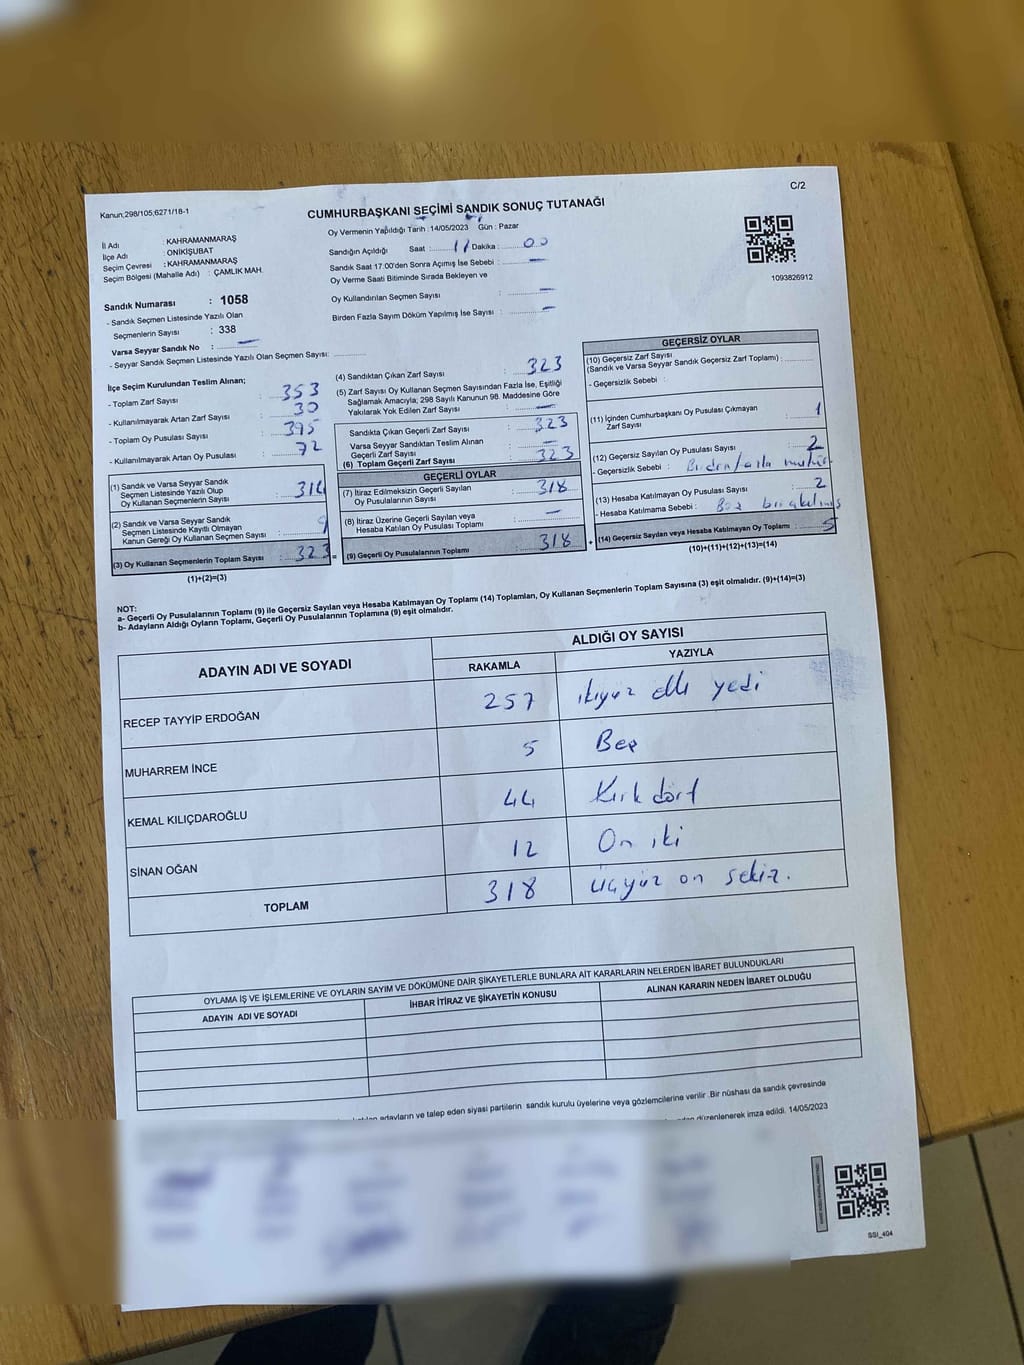 C/2
Kanun,298/105;6271/18-1
CUMHURBAŞKANI SEÇİMİ SANDIK SONUÇ TUTANAĞI
Oy Vermenin Yapıldığı Tarih :14/05/2023 Gün : Pazar
İl Adı : KAHRAMANMARAŞ
İlçe Adı : ONİKİŞUBAT
Seçim Çevresi : KAHRAMANMARAŞ
Seçim Bölgesi (Mahalle Adı) : ÇAMLIK MAH.
Sandık Numarası : 1058
- Sandık Seçmen Listesinde Yazılı Olan
Seçmenlerin Sayısı : 338
Varsa Seyyar Sandık No : —
- Seyyar Sandık Seçmen Listesinde Yazılı Olan Seçmen Sayısı:
Sandığın Açıldığı Saat : 11 Dakika : 00
Sandık Saat 17:00'den Sonra Açımış İse Sebebi : —
Oy Verme Saati Bitiminde Sırada Bekleyen ve
Oy Kullandırılan Seçmen Sayısı : —
Birden Fazla Sayım Döküm Yapılmış İse Sayısı : —
1093826912
İlçe Seçim Kurulundan Teslim Alınan;
- Toplam Zarf Sayısı : 353
- Kullanılmayarak Artan Zarf Sayısı : 30
- Toplam Oy Pusulası Sayısı : 395
- Kullanılmayarak Artan Oy Pusulası : 72
(1) Sandık ve Varsa Seyyar Sandık
Seçmen Listesinde Yazılı Olup
Oy Kullanan Seçmenlerin Sayısı : 314
(2) Sandık ve Varsa Seyyar Sandık
Seçmen Listesinde Kayıtlı Olmayan
Kanun Gereği Oy Kullanan Seçmen Sayısı : 9
(3) Oy Kullanan Seçmenlerin Toplam Sayısı : 323
(1)+(2)=(3)
(4) Sandıktan Çıkan Zarf Sayısı : 323
(5) Zarf Sayısı Oy Kullanan Seçmen Sayısından Fazla İse, Eşitliği
Sağlamak Amacıyla; 298 Sayılı Kanunun 98. Maddesine Göre
Yakılarak Yok Edilen Zarf Sayısı : —
Sandıkta Çıkan Geçerli Zarf Sayısı : 323
Varsa Seyyar Sandıktan Teslim Alınan
Geçerli Zarf Sayısı : —
(6) Toplam Geçerli Zarf Sayısı : 323
GEÇERLİ OYLAR
(7) İtiraz Edilmeksizin Geçerli Sayılan
Oy Pusulalarının Sayısı : 318
(8) İtiraz Üzerine Geçerli Sayılan veya
Hesaba Katılan Oy Pusulası Toplamı : —
= (9) Geçerli Oy Pusulalarının Toplamı : 318
GEÇERSİZ OYLAR
(10) Geçersiz Zarf Sayısı
(Sandık ve Varsa Seyyar Sandık Geçersiz Zarf Toplamı) :
- Geçersizlik Sebebi :
(11) İçinden Cumhurbaşkanı Oy Pusulası Çıkmayan
Zarf Sayısı : 1
(12) Geçersiz Sayılan Oy Pusulası Sayısı : 2
- Geçersizlik Sebebi : Birden fazla mühür
(13) Hesaba Katılmayan Oy Pusulası Sayısı : 2
- Hesaba Katılmama Sebebi : Boş bırakılmış
+ (14) Geçersiz Sayılan veya Hesaba Katılmayan Oy Toplamı : 5
(10)+(11)+(12)+(13)=(14)
NOT:
a- Geçerli Oy Pusulalarının Toplamı (9) ile Geçersiz Sayılan veya Hesaba Katılmayan Oy Toplamı (14) Toplamları, Oy Kullanan Seçmenlerin Toplam Sayısına (3) eşit olmalıdır. (9)+(14)=(3)
b- Adayların Aldığı Oyların Toplamı, Geçerli Oy Pusulalarının Toplamına (9) eşit olmalıdır.
ADAYIN ADI VE SOYADI
ALDIĞI OY SAYISI
RAKAMLA YAZIYLA
RECEP TAYYİP ERDOĞAN 257 ikiyüz elli yedi
MUHARREM İNCE 5 Beş
KEMAL KILIÇDAROĞLU 44 Kırk dört
SİNAN OĞAN 12 On iki
TOPLAM 318 üçyüz on sekiz.
OYLAMA İŞ VE İŞLEMLERİNE VE OYLARIN SAYIM VE DÖKÜMÜNE DAİR ŞİKAYETLERLE BUNLARA AİT KARARLARIN NELERDEN İBARET BULUNDUKLARI
ADAYIN ADI VE SOYADI İHBAR İTİRAZ VE ŞİKAYETİN KONUSU ALINAN KARARIN NEDEN İBARET OLDUĞU
adayların ve talep eden siyasi partilerin sandık kurulu üyelerine veya gözlemcilerine verilir .Bir nüshası da sandık çevresinde
düzenlenerek imza edildi. 14/05/2023
SSİ_404